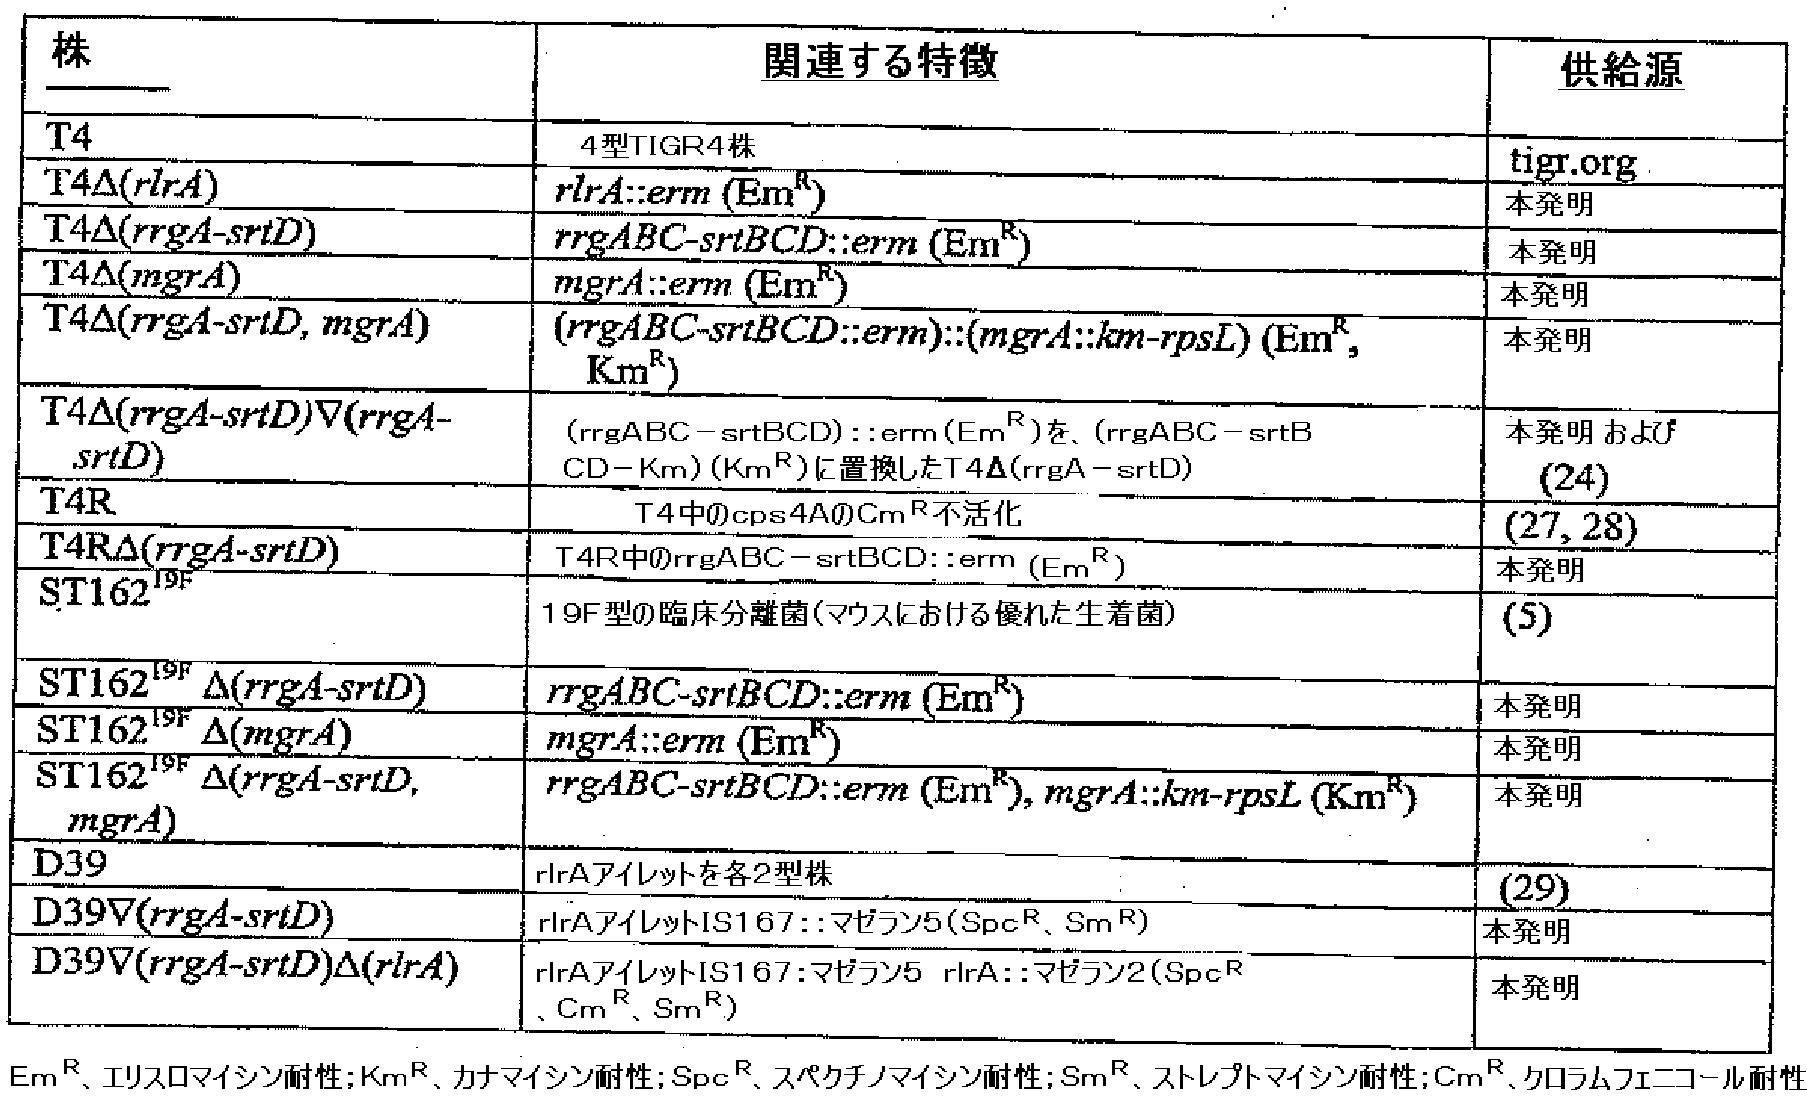 株 関連する特徴 供給源
T4 4型TIGR4株 tigr.org
T4Δ(rlrA) rlrA::erm (Em^R) 本発明
T4Δ(rrgA-srtD) rrgABC-srtBCD::erm (Em^R) 本発明
T4Δ(mgrA) mgrA::erm (Em^R) 本発明
T4Δ(rrgA-srtD, mgrA) (rrgABC-srtBCD::erm)::(mgrA::km-rpsL) (Em^R, 本発明
Km^R)
T4Δ(rrgA-srtD)∇(rrgA- (rrgABC-srtBCD)::erm(Em^R)を、(rrgABC-srtB 本発明 および
srtD) CD-Km)(Km^R)に置換したT4Δ(rrgA-srtD) (24)
T4R T4中のcps4AのCm^R不活化 (27, 28)
T4RΔ(rrgA-srtD) T4R中のrrgABC-srtBCD::erm (Em^R) 本発明
ST162^19F 19F型の臨床分離菌(マウスにおける優れた生着菌) (5)
ST162^19F Δ(rrgA-srtD) rrgABC-srtBCD::erm (Em^R) 本発明
ST162^19F Δ(mgrA) mgrA::erm (Em^R) 本発明
ST162^19F Δ(rrgA-srtD, rrgABC-srtBCD::erm (Em^R), mgrA::km-rpsL (Km^R) 本発明
mgrA)
D39 rlrAアイレットを各2型株 (29)
D39∇(rrgA-srtD) rlrAアイレットIS167::マゼラン5(Spc^R、Sm^R) 本発明
D39∇(rrgA-srtD)Δ(rlrA) rlrAアイレットIS167:マゼラン5 rlrA::マゼラン2(Spc^R 本発明
、Cm^R、Sm^R)
Em^R、エリスロマイシン耐性;Km^R、カナマイシン耐性;Spc^R、スペクチノマイシン耐性;Sm^R、ストレプトマイシン耐性;Cm^R、クロラムフェニコール耐性